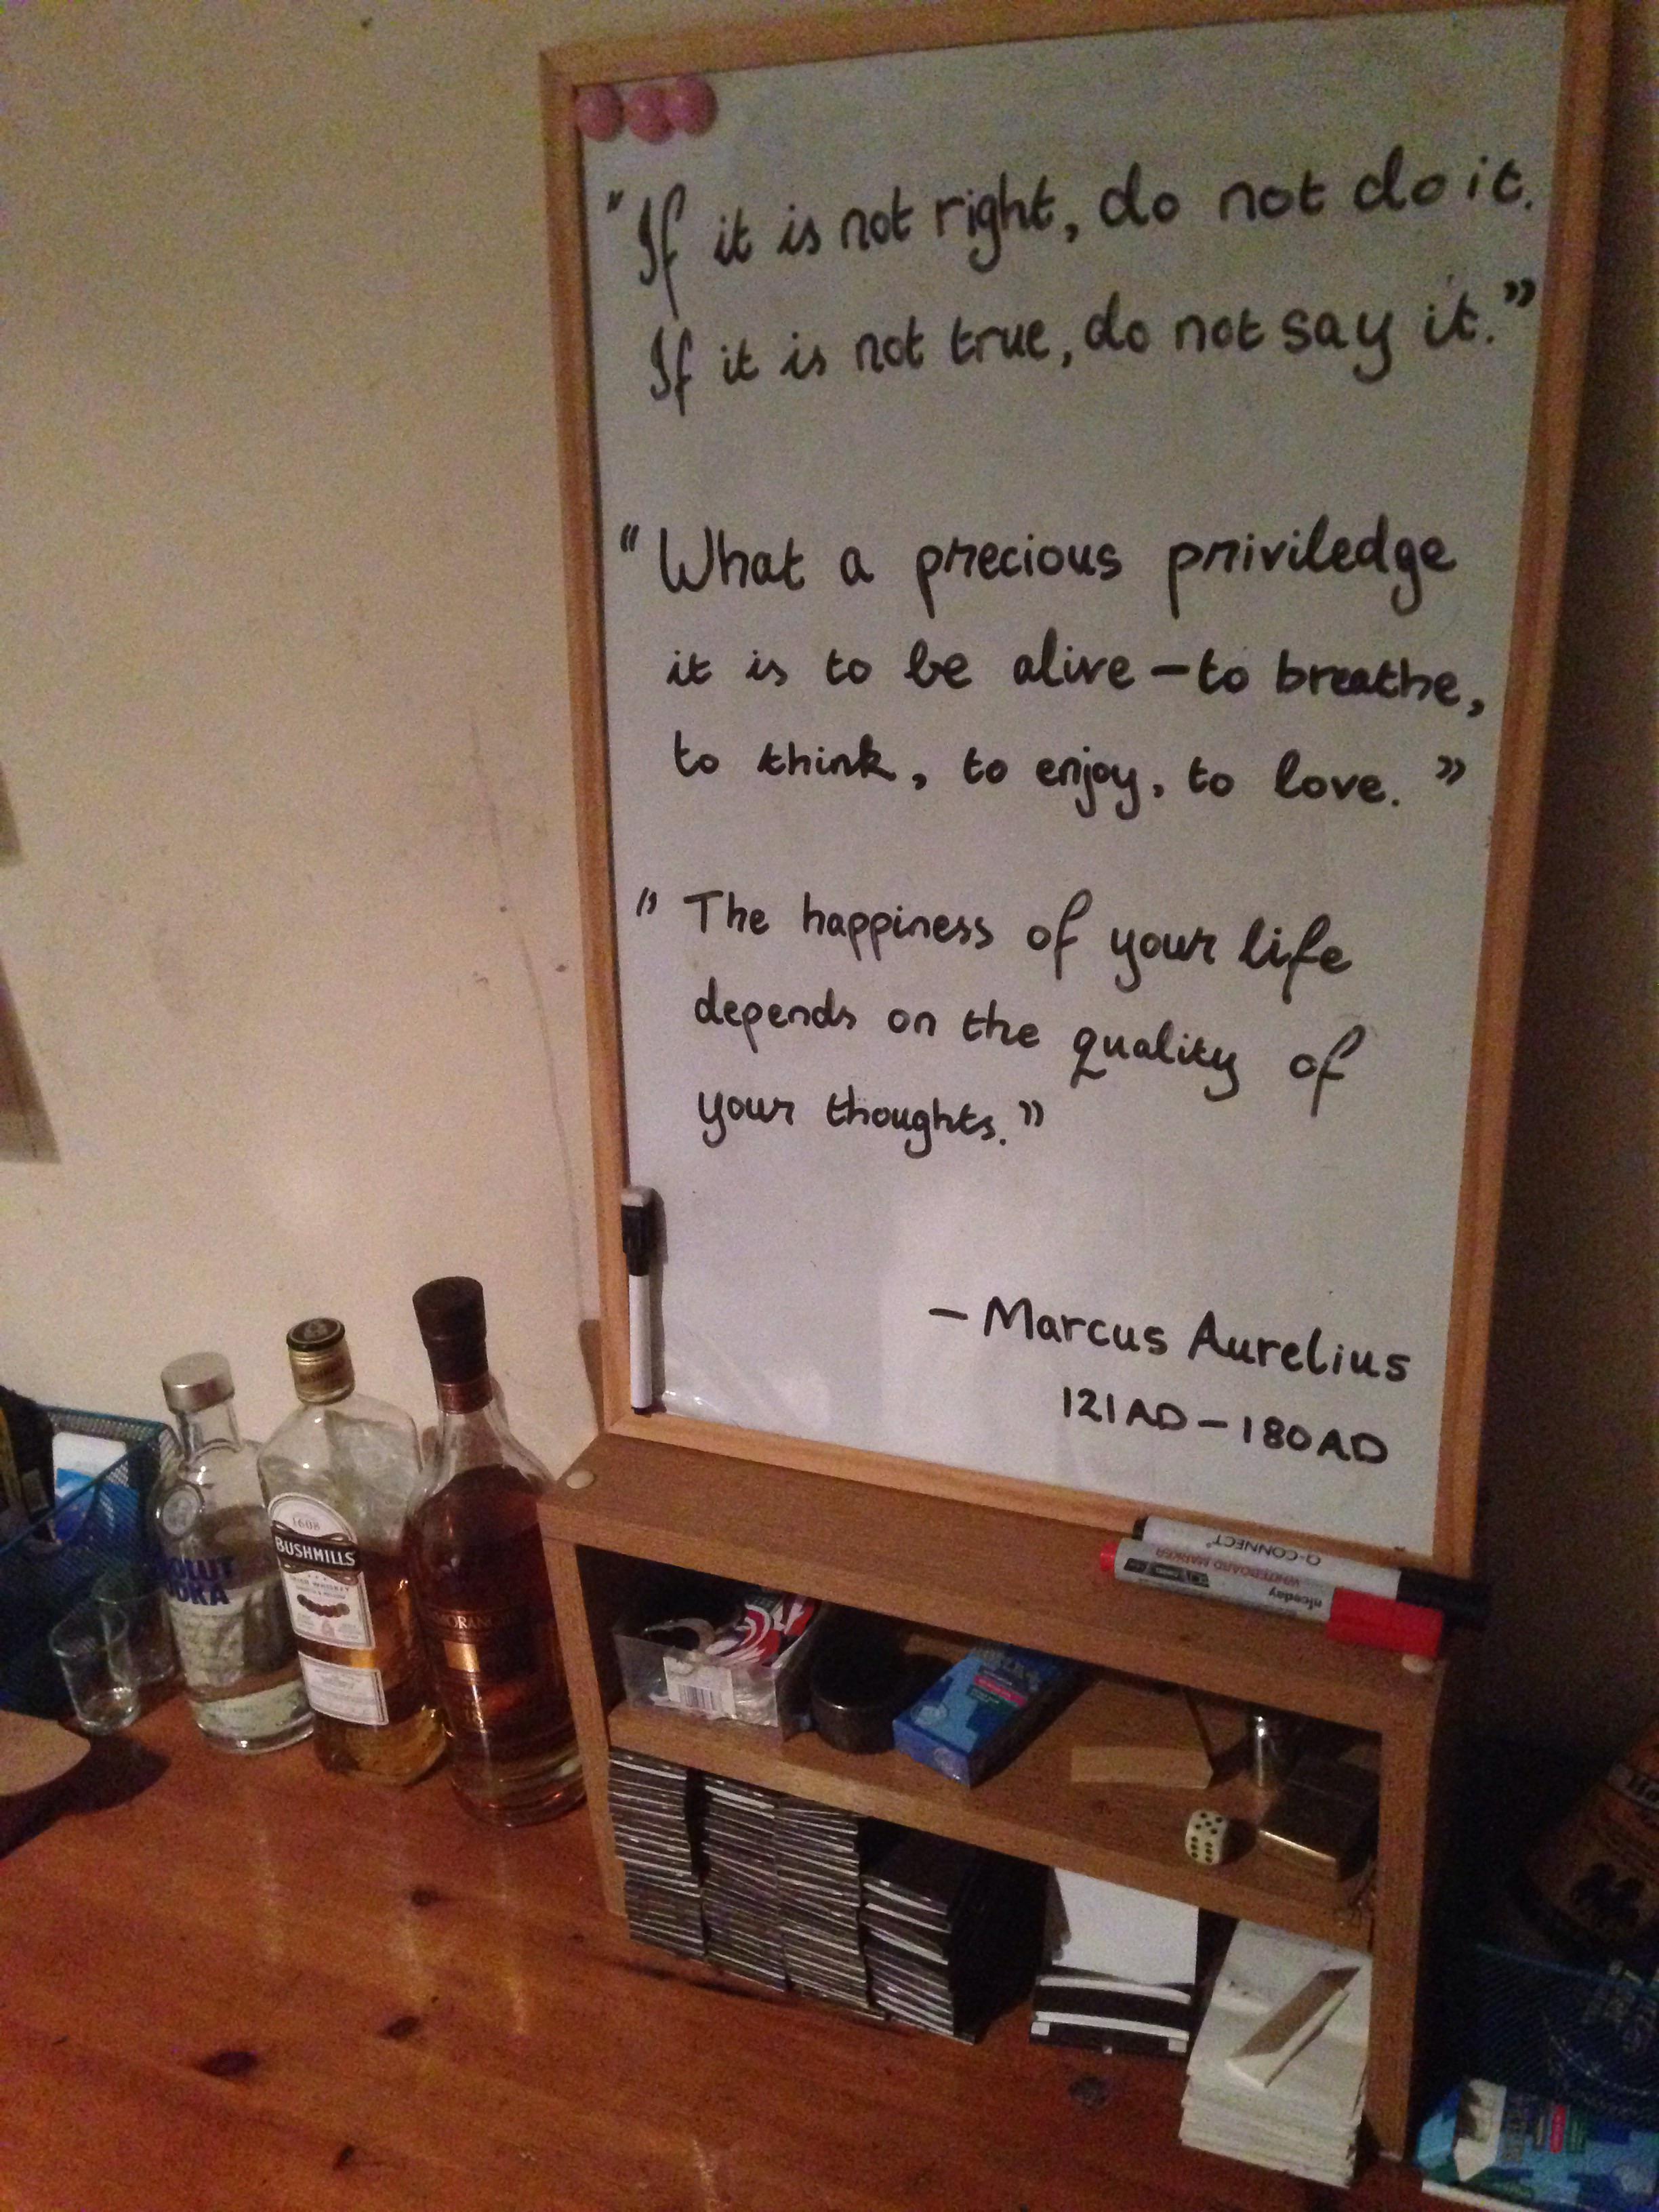 "If it is not right, do not do it.
If it is not true, do not say it."
"What a precious priviledge
it is to be alive – to breathe,
to think, to enjoy, to love."
"The happiness of your life
depends on the quality of
your thoughts."
– Marcus Aurelius
121AD – 180AD
Q-CONNECT
WHITEBOARD MARKER
niceday
1608
BUSHMILLS
IRISH WHISKEY
OLUT
DKA
MORANGI